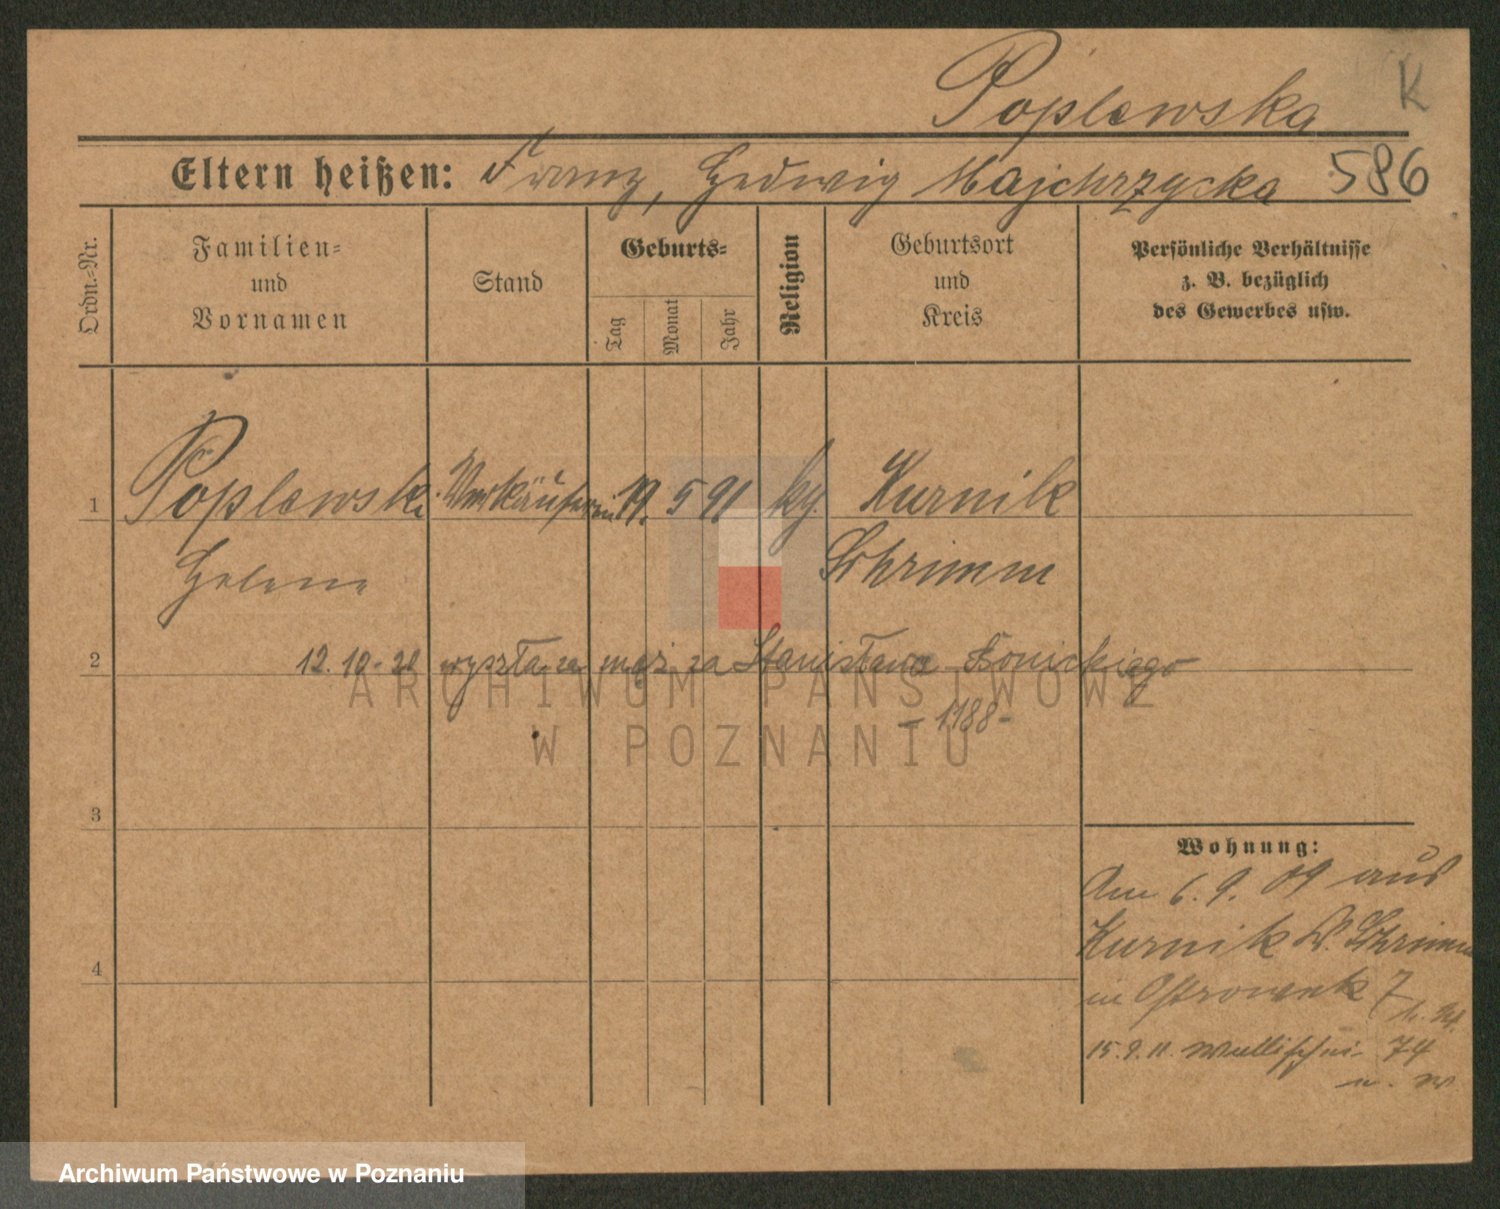 Poplewska K
Eltern heißen: Franz, Hedwig Majchrzycka 586
Ordn.-Nr.
Familien-
und
Vornamen
Stand
Geburts-
Tag
Monat
Jahr
Religion
Geburtsort
und
Kreis
Persönliche Verhältnisse
z. B. bezüglich
des Gewerbes usw.
1 Poplewski Verkäuferin 19. 5 91 kg. Kurnik
Helene Schrimm
2 12.10.20 wyszła za mąż za Stanisława
- 1188 -
3
4
Wohnung:
Am 6.9.09 aus
Kurnik Kr. Schrimm
in Ostrowek 7
15.9.11. Wallischei 74
ARCHIWUM PAŃSTWOWE
W POZNANIU
Archiwum Państwowe w Poznaniu